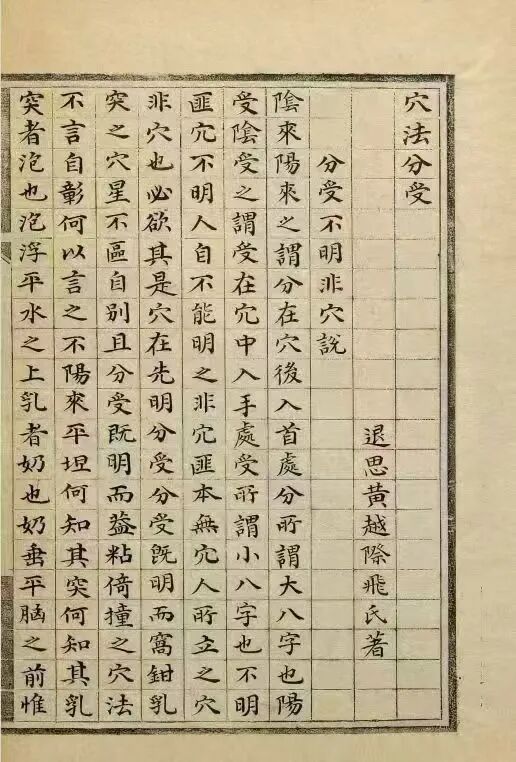 穴法分受
退思黃越際飛氏著
分受不明非穴説
陰來陽來之謂分在穴後入首處分所謂大八字也陽
受陰受之謂受在穴中入手處受所謂小八字也不明
匪穴不明人自不能明之非穴匪本無穴人所立之穴
非穴也必欲其是穴在先明分受分受既明而窩鉗乳
突之穴星不區自別且分受既明而葢粘倚撞之穴法
不言自彰何以言之不陽來平坦何知其突何知其乳
突者泡也泡浮平水之上乳者奶也奶垂平胸之前惟